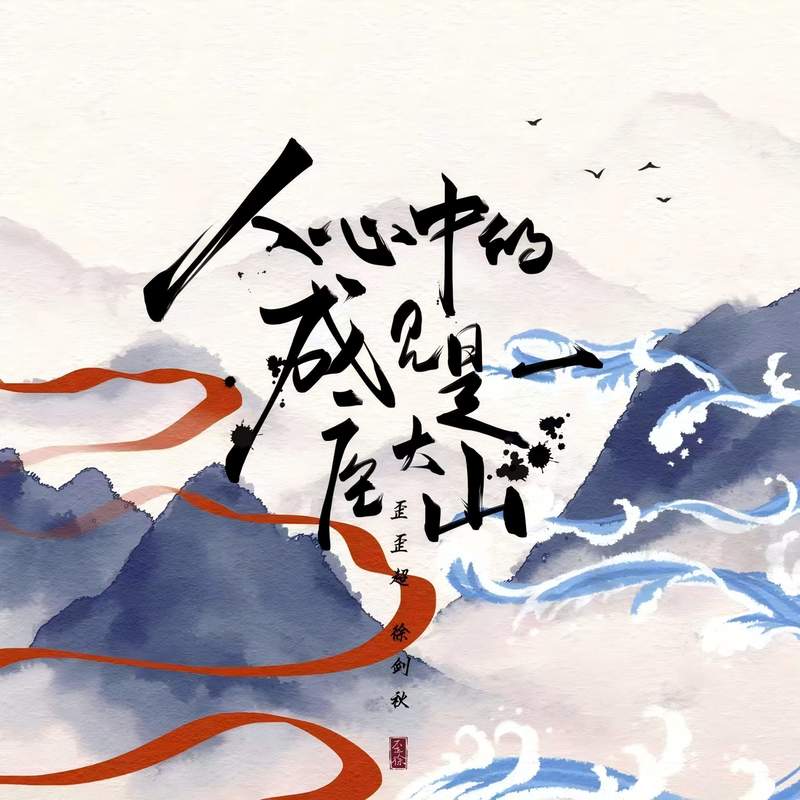 人心中的
成见是一
座大山
歪歪超 徐剑秋
歪徐